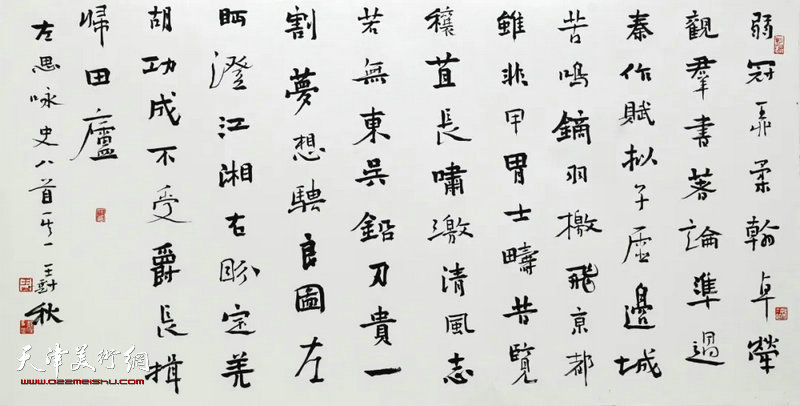 弱冠弄柔翰卓犖
觀羣書著論準過
秦作賦拟子虛邊城
苦鳴鏑羽檄飛京都
雖非甲胄士疇昔覽
穰苴長嘯激清風志
若無東吳鉛刀貴一
割夢想騁良圖左
眄澄江湘右盼定羌
胡功成不受爵長揖
歸田廬
左思咏史八首其一 王 秋
天津美術網
www.022meishu.com